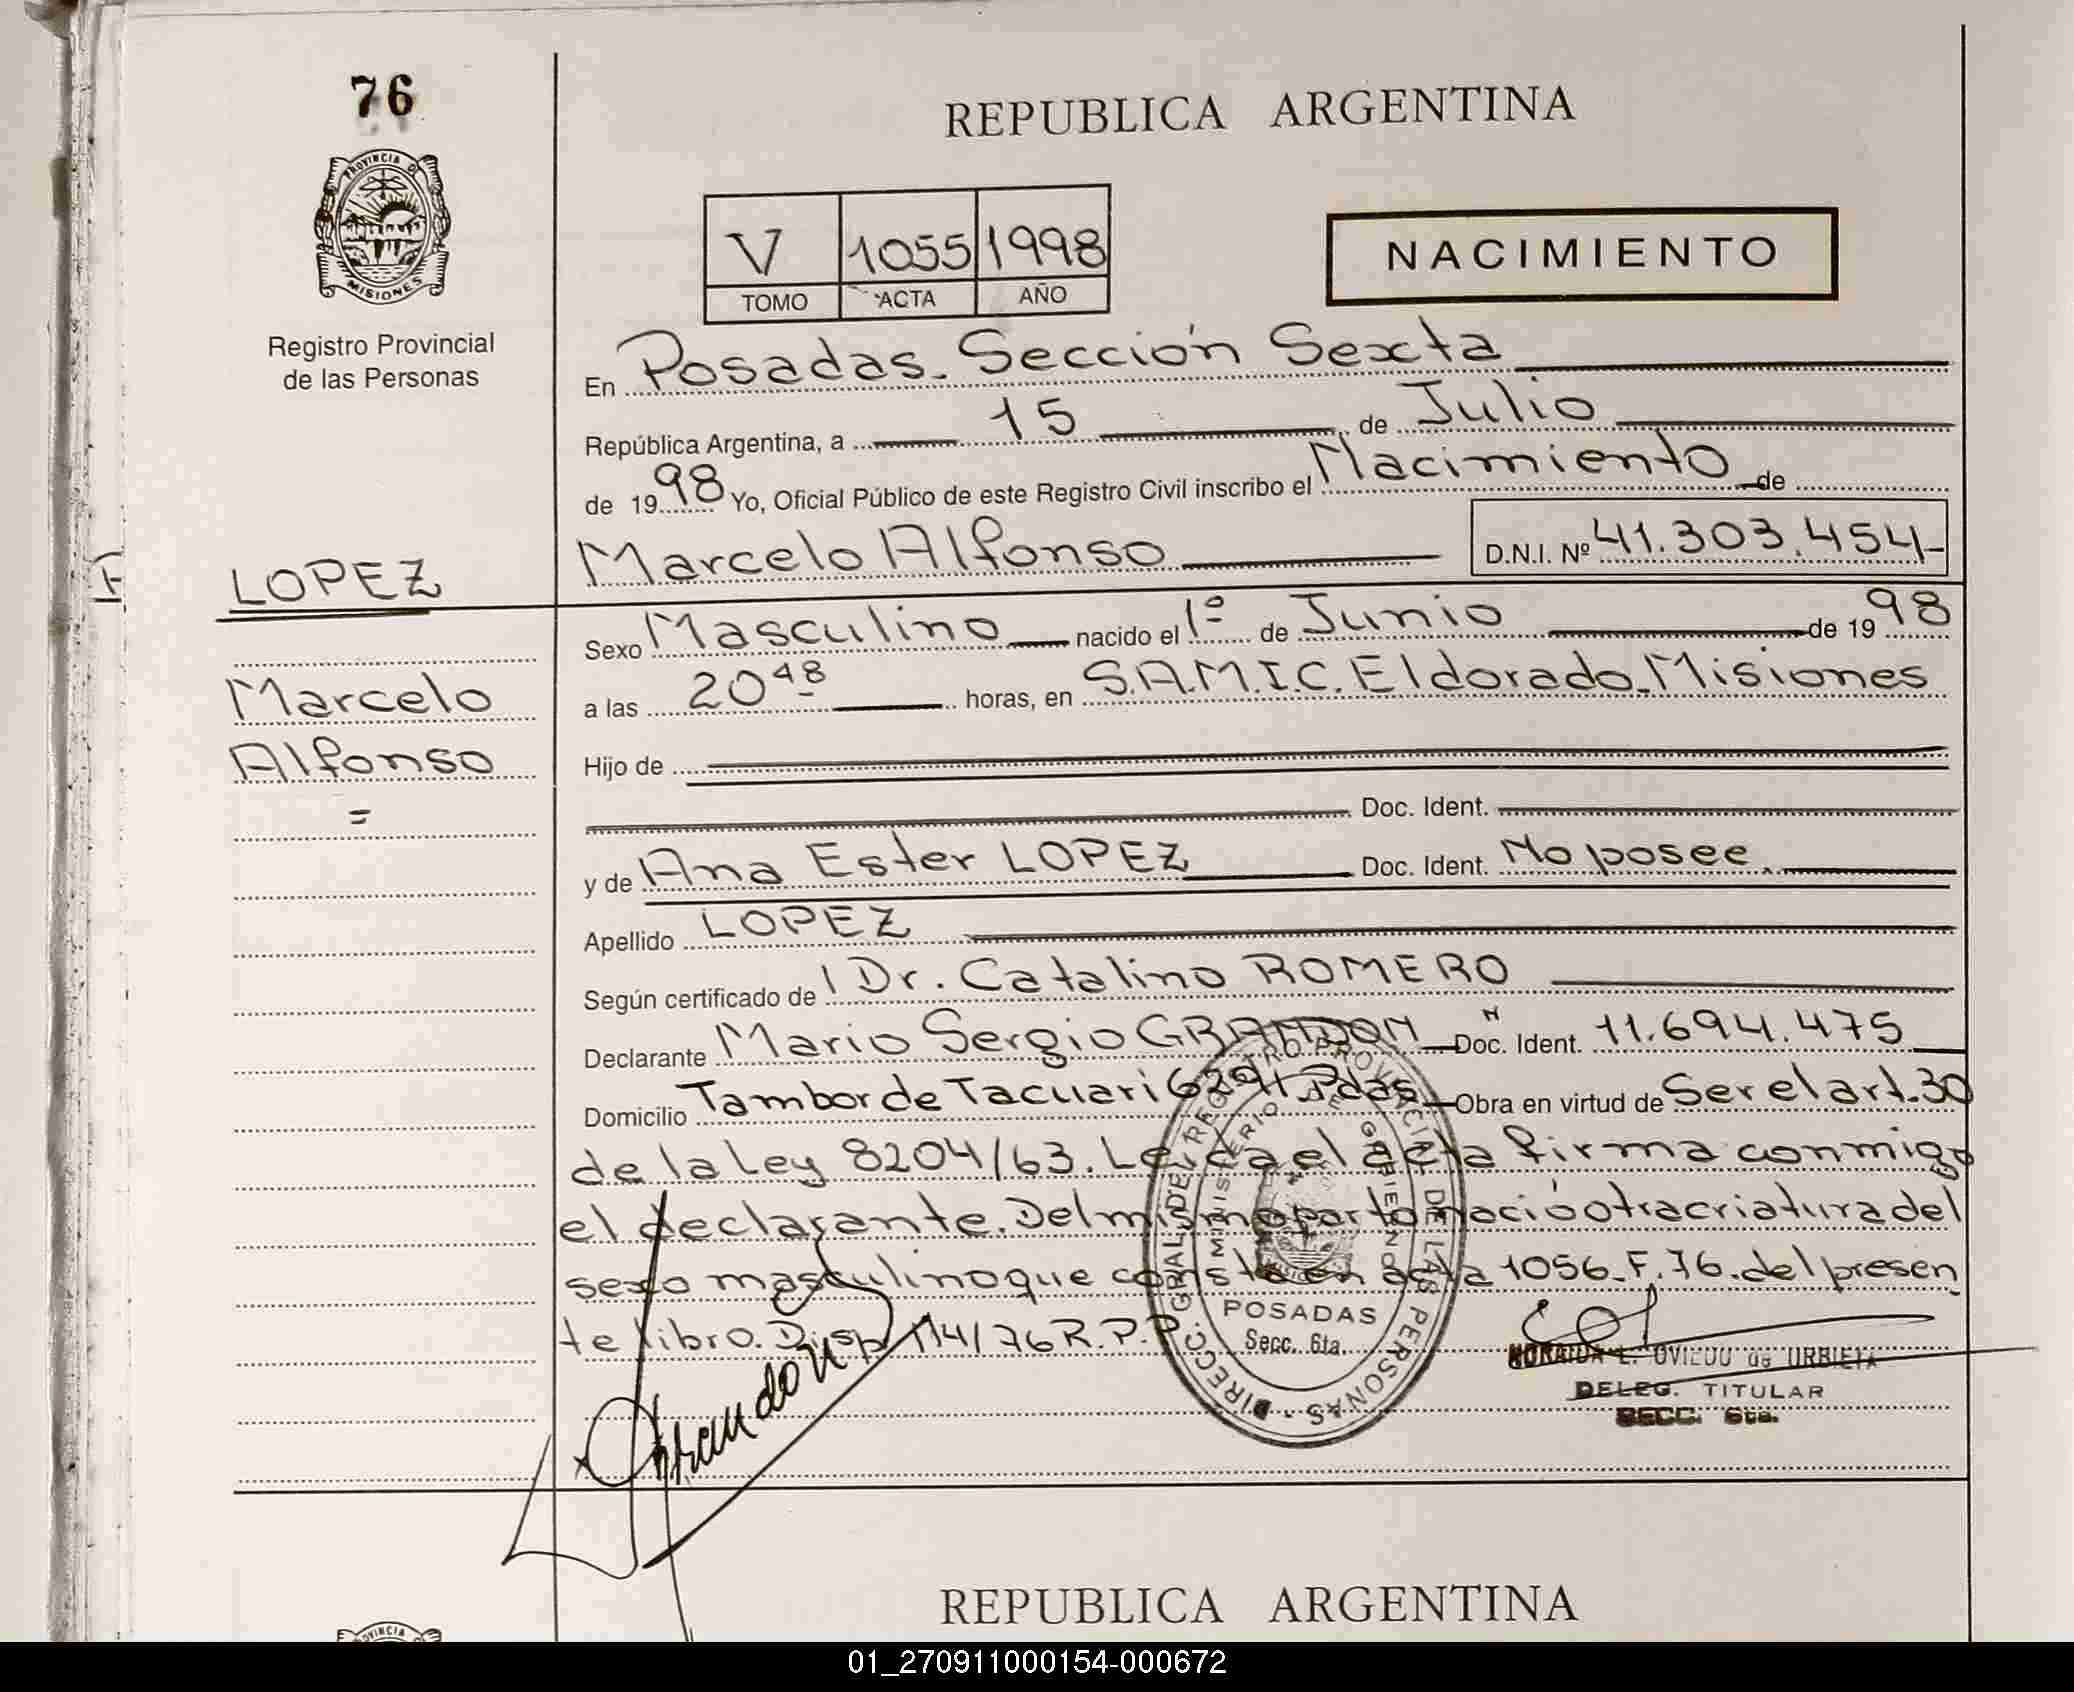 76
PROVINCIA D
MISIONES
Registro Provincial
de las Personas
REPUBLICA ARGENTINA
V 1055 1998
TOMO ACTA AÑO
NACIMIENTO
En Posadas. Sección Sexta
República Argentina, a 15 de Julio
de 1998 Yo, Oficial Público de este Registro Civil inscribo el Nacimiento de
Marcelo Alfonso D.N.I. Nº 41.303.454-
LOPEZ
Marcelo
Alfonso
=
Sexo Masculino nacido el 1º de Junio de 1998
a las 20 48 horas, en S.A.M.I.C. Eldorado. Misiones
Hijo de
Doc. Ident.
y de Ana Ester LOPEZ Doc. Ident. No posee.
Apellido LOPEZ
Según certificado de Dr. Catalino ROMERO
Declarante Mario Sergio GRANDON Doc. Ident. 11.694.475
Domicilio Tambor de Tacuari Pdas. Obra en virtud de Ser el art. 30
de la Ley 8204/63. Leída el acta firma conmigo
el declarante. Del mismo parto nació otra criatura del
sexo masculino que consta en acta 1056. F. 76. del presen
te libro. Disp. 114/76 R.P.P.
DIRECC. GRAL. DEL REGISTRO PROVINCIAL DE LAS PERSONAS
MINISTERIO DE GOBIERNO
POSADAS
Secc. 6ta.
Grandon
NORAIDA L. OVIEDO de URBIETA
DELEG. TITULAR
SECC. 6ta.
REPUBLICA ARGENTINA
PROVINCIA
01_270911000154-000672